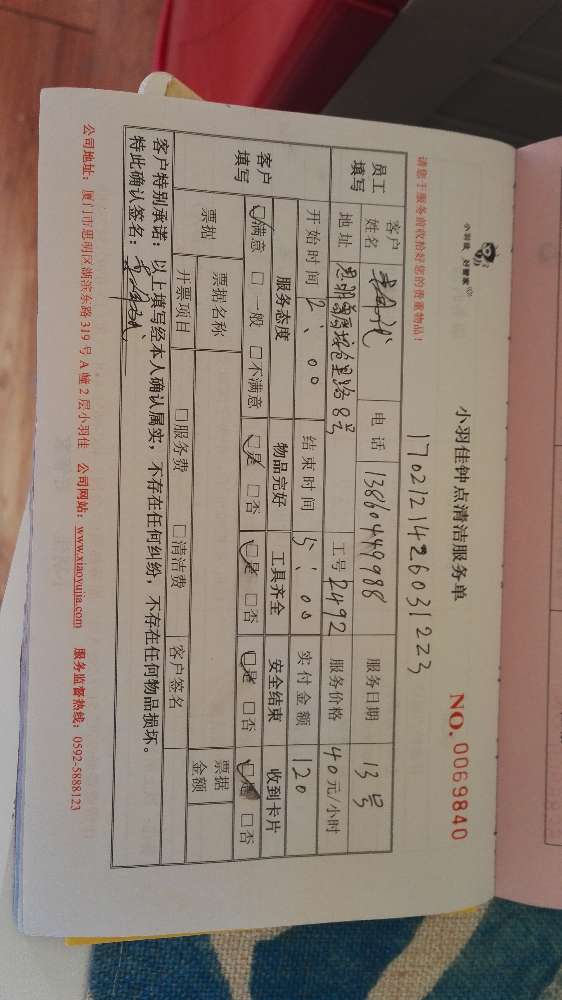 小羽佳 好管家
小羽佳钟点清洁服务单
NO. 0069840
17021214260312 23
请您于服务前收拾好您的贵重物品！
员工填写 客户姓名 电话 13860449988 服务日期 13号
地址 工号 2492 服务价格 40元/小时
开始时间 2:00 结束时间 5:00 实付金额 120
客户填写 服务态度 物品完好 工具齐全 安全结束 收到卡片
☑满意 □一般 □不满意 ☑是 □否 ☑是 □否 ☑是 □否 ☑是 □否
票据 票据名称 票据金额
开票项目 □服务费 □清洁费 客户签名
客户特别承诺：以上填写经本人确认属实，不存在任何纠纷，不存在任何物品损坏。
特此确认签名：
公司地址：厦门市思明区湖滨东路319号A幢2层小羽佳 公司网站：www.xiaoyujia.com 服务监督热线：0592-5888123